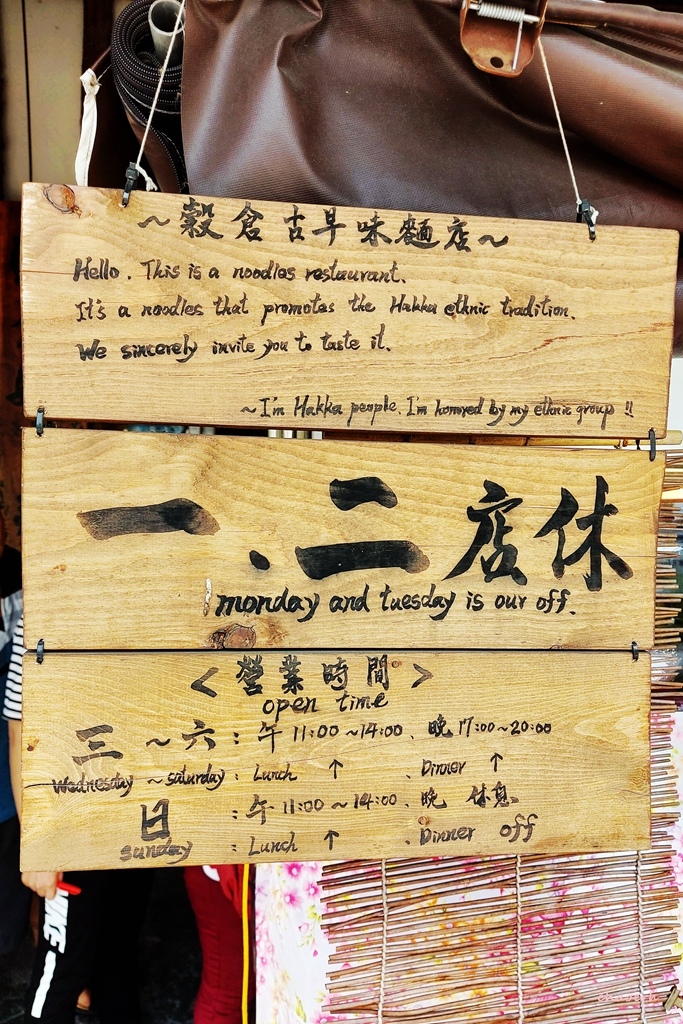 ～穀倉古早味麵店～
Hello. This is a noodles restaurant.
It's a noodles that promotes the Hakka ethnic tradition.
We sincerely invite you to taste it.
~I'm Hakka people. I'm honored by my ethnic group !!
一、二店休
monday and tuesday is our off.
＜營業時間＞
open time
三～六：午 11:00～14:00、晚 17:00～20:00
Wednesday ~ saturday : Lunch ↑ 、Dinner ↑
日：午 11:00～14:00、晚 休息
sunday : Lunch ↑ 、Dinner off
NIKE